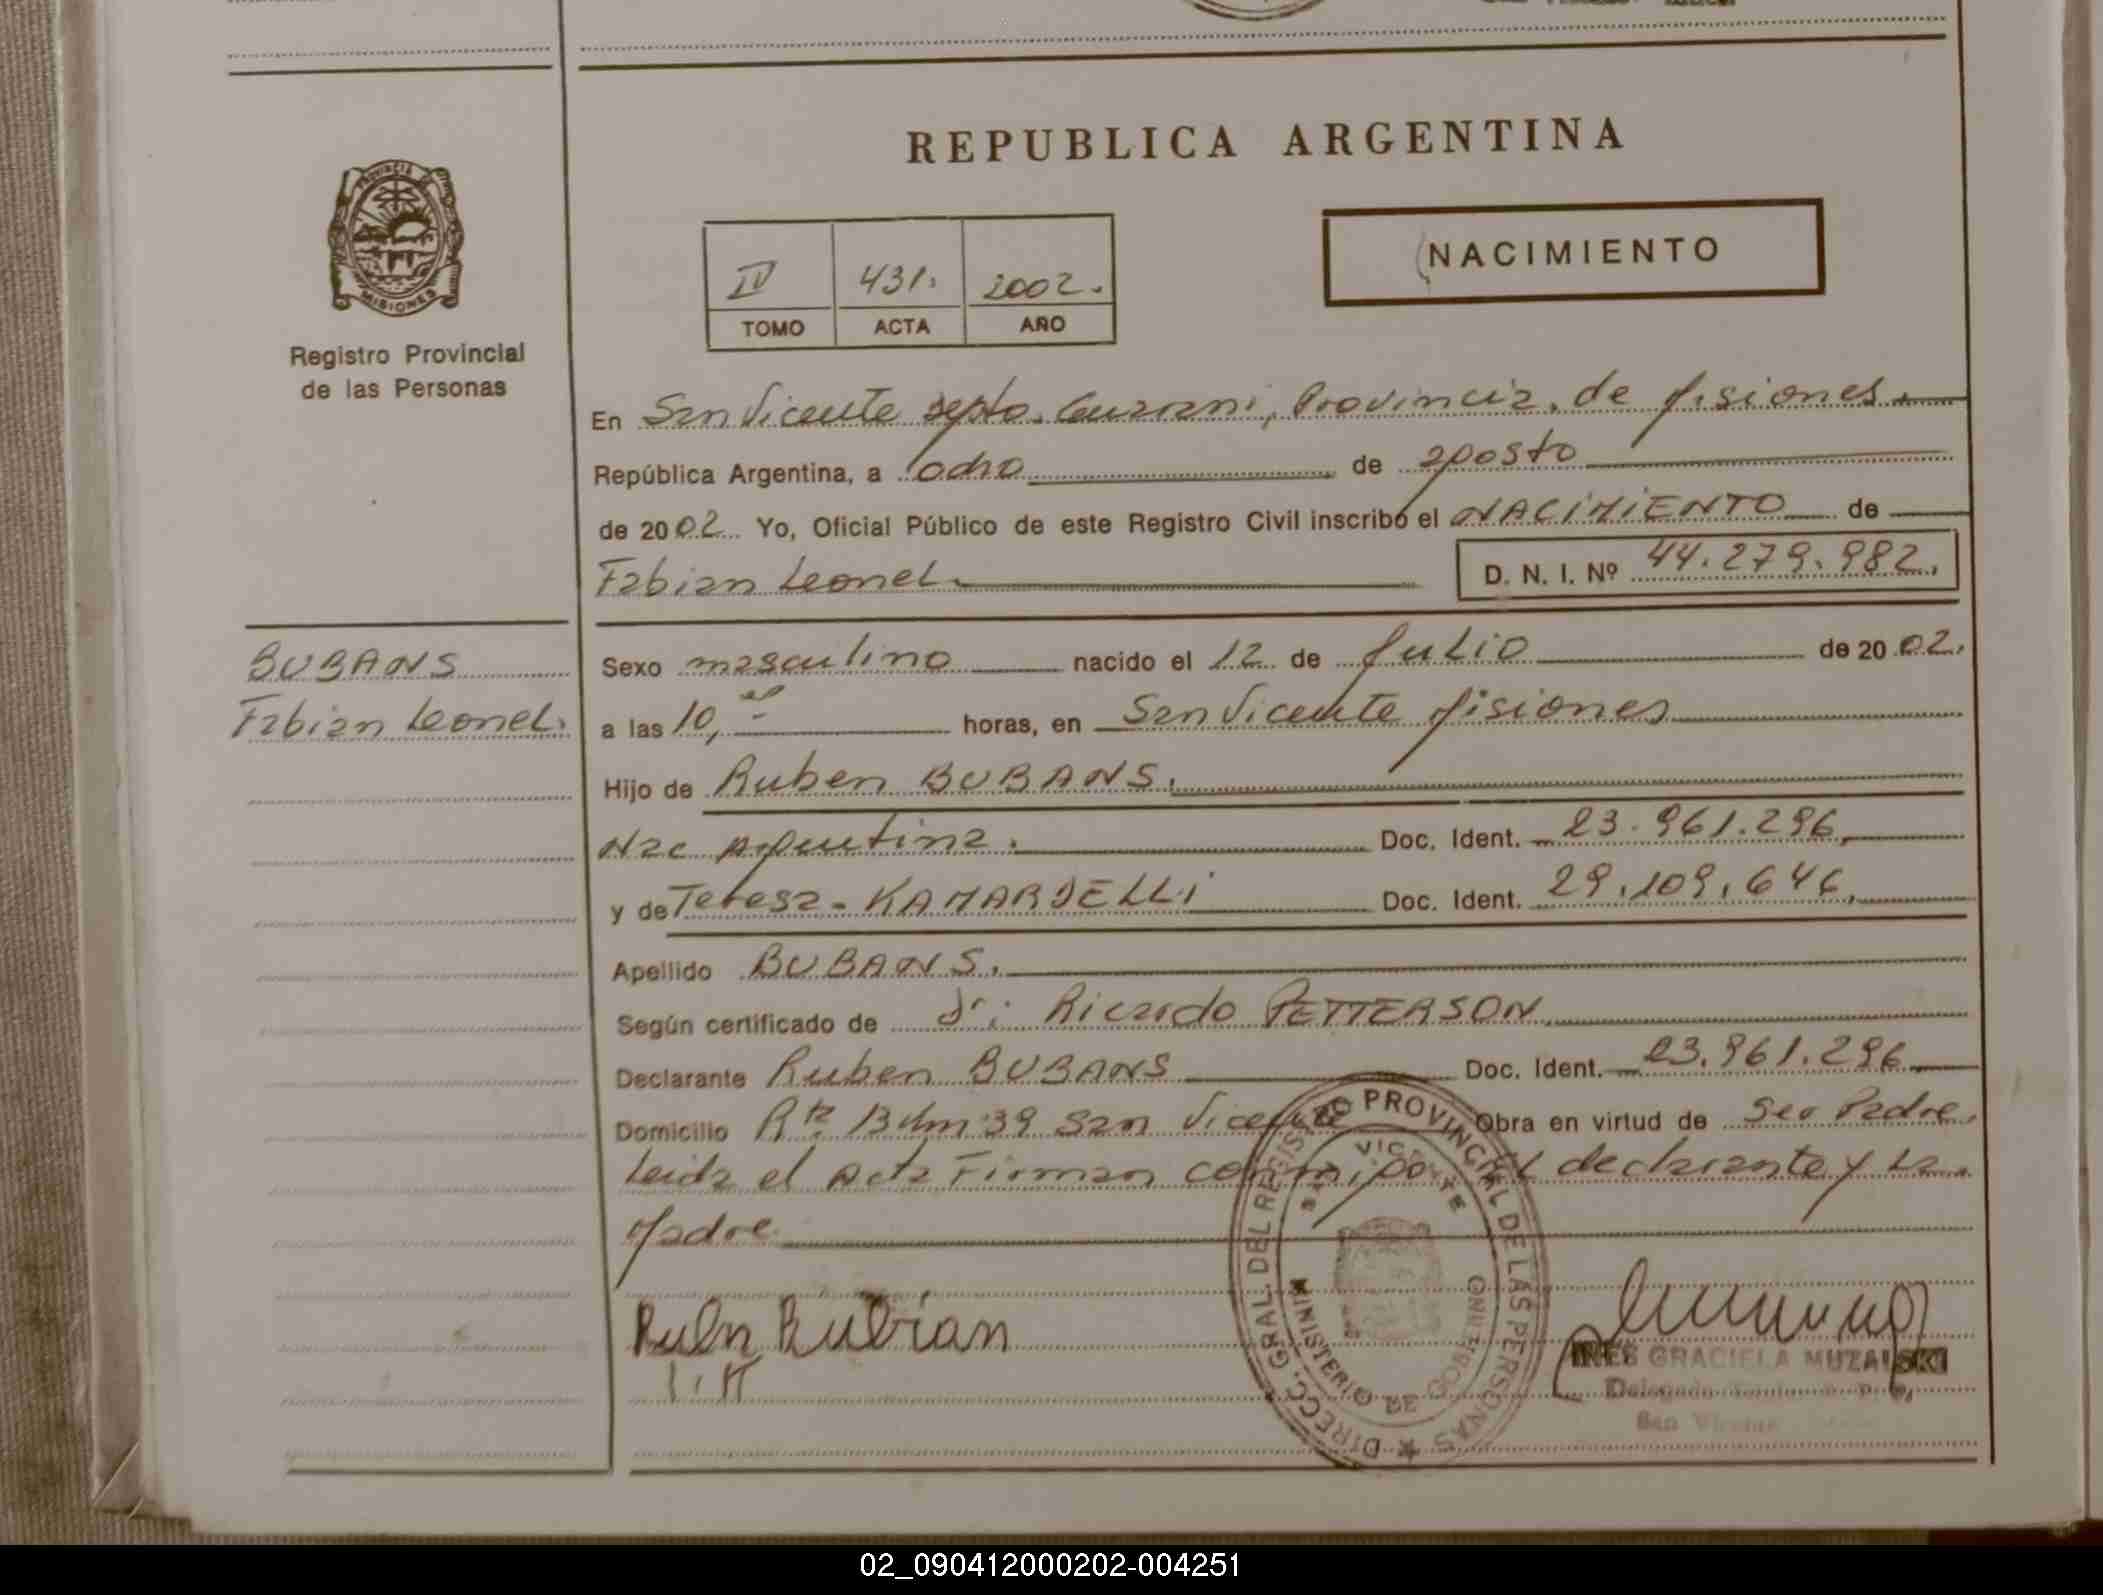 REPUBLICA ARGENTINA
PROVINCIA DE
MISIONES
Registro Provincial
de las Personas
IV 431. 2002.
TOMO ACTA AÑO
NACIMIENTO
En San Vicente depto. Guarani, Provincia de Misiones.
República Argentina, a ocho de agosto
de 2002 Yo, Oficial Público de este Registro Civil inscribo el NACIMIENTO de
Fabian Leonel. D. N. I. Nº 44.279.982.
BUBANS
Fabian Leonel.
Sexo masculino nacido el 12 de Julio de 2002.
a las 10, horas, en San Vicente Misiones
Hijo de Ruben BUBANS.
Nac Argentina. Doc. Ident. 23.961.296.
y de Teresa - KAMARDELLI Doc. Ident. 29.109.646.
Apellido BUBANS.
Según certificado de dr: Ricardo PETTERSON
Declarante Ruben BUBANS Doc. Ident. 23.961.296
Domicilio Rta 13 km 39 San Vicente Obra en virtud de ser Padre.
Leida el Acta Firman conmigo el declarante y La
Madre
DIRECC. GRAL. DEL REGISTRO PROVINCIAL DE LAS PERSONAS
SAN VICENTE
MINISTERIO DE GOBIERNO
INES GRACIELA MUZALSKI
02_090412000202-004251